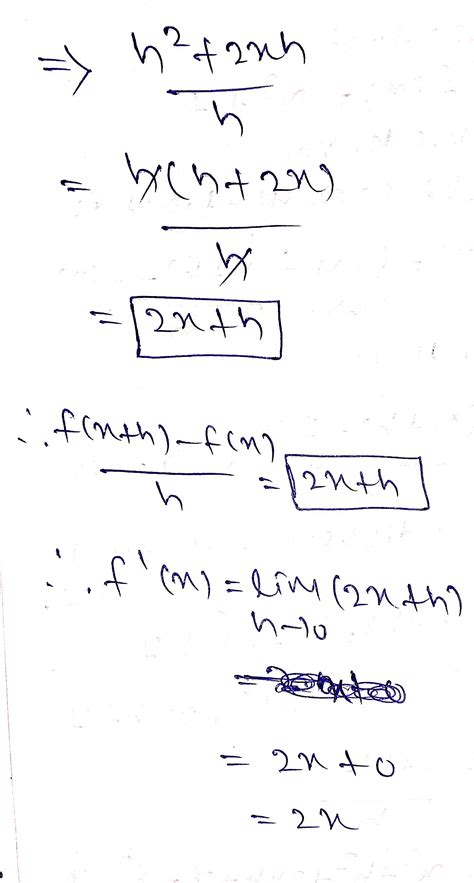 ⇒ h²+2xh / h
= h(h+2x) / h
= 2x+h
∴ f(x+h)-f(x) / h = 2x+h
∴ f'(x) = lim (2x+h)
h→0
= 2x+0
= 2x